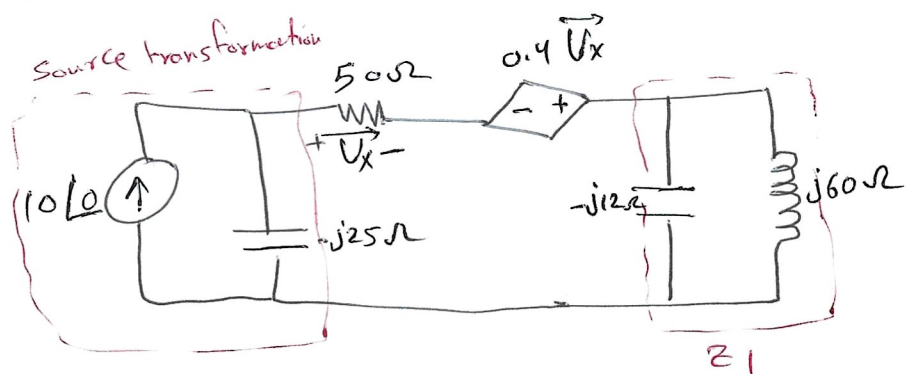 Source transformation
50Ω
0.4 Vx
- +
+ Vx -
10∠0
-j25Ω
-j12Ω
j60Ω
Z1